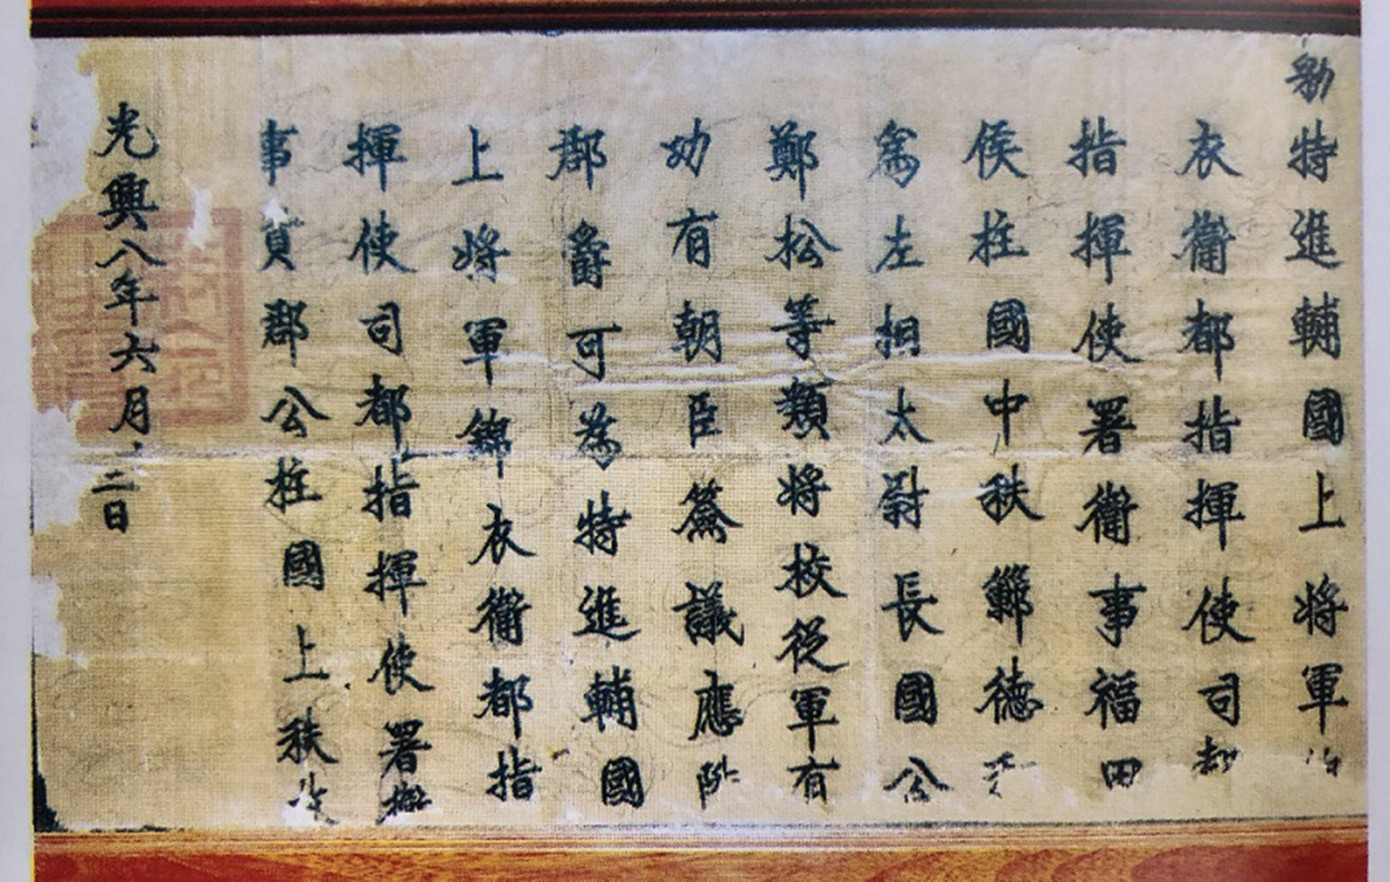 勅特進輔國上将軍
衣衞都指揮使司都
指揮使署衞事福田
侯柱國中秩鄭德
爲左相太尉長國公
鄭松等類將校從軍有
功有朝臣簽議應陞
郡爵可爲特進輔國
上將軍錦衣衞都指
揮使司都指揮使署
事貢郡公柱國上秩
光興八年六月二日